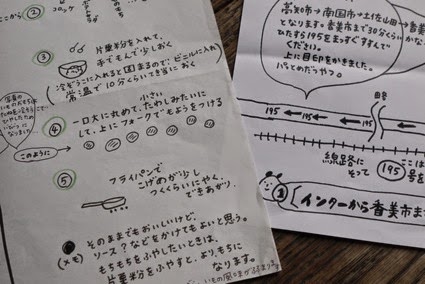 ここから
②
コロッケ
③
片栗粉を入れて、
手でもんで少しおく
(冷ぞうこに入れると固まるので、ビニールに入れ
常温で10分くらいてきとうにおく
④
小さい
一口大に丸めて、たわしみたいに
して、上にフォークでもようをつける
このように
⑤
フライパンで
こげめが少し
つくくらいにやく。
できあがり。
(メモ)
そのままでもおいしいけど、
ソース?などをかけてもよいと思う。
もちもちをふやしたいときは、
片栗粉をふやすと、より、もちに
なります。
高知市→南国市→土佐山田→香美市
となります。香美市まで30分くらいかな
ひたすら195をまっすぐすすんで
ください。
上に目印をかきました。
195
195
195
線路に
そって
195
ここは
号を
インターから香美市ま